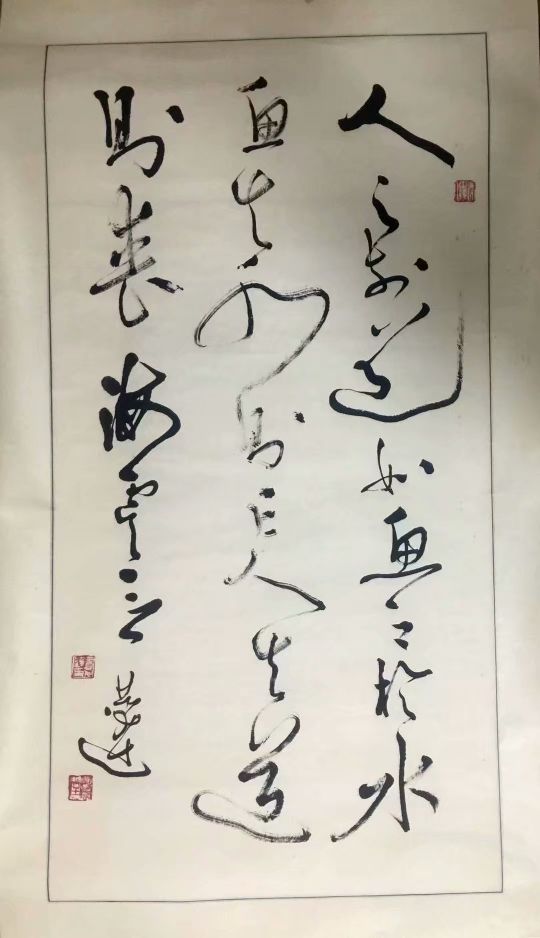 人之於道如魚之於水
魚失水則亡人失道
則喪 海雲